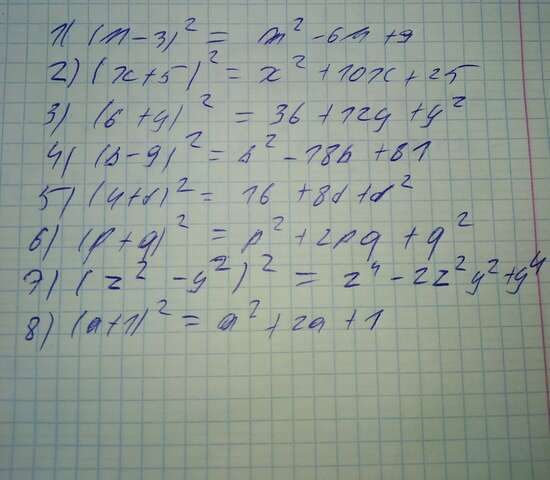 1) (n-3)² = m² -6n +9
2) (x+5)² = x² +10x +25
3) (6 +y)² = 36 +12y +y²
4) (b-9)² = b² -18b +81
5) (4+d)² = 16 +8d +d²
6) (p+q)² = p² +2pq +q²
7) (z² -y²)² = z⁴ -2z²y² +y⁴
8) (a+1)² = a² +2a +1